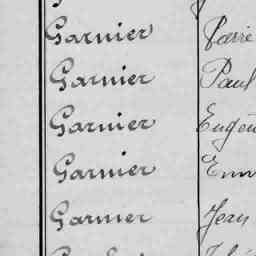 Garnier
Garnier Paul
Garnier Eugèn
Garnier Em
Garnier Jean